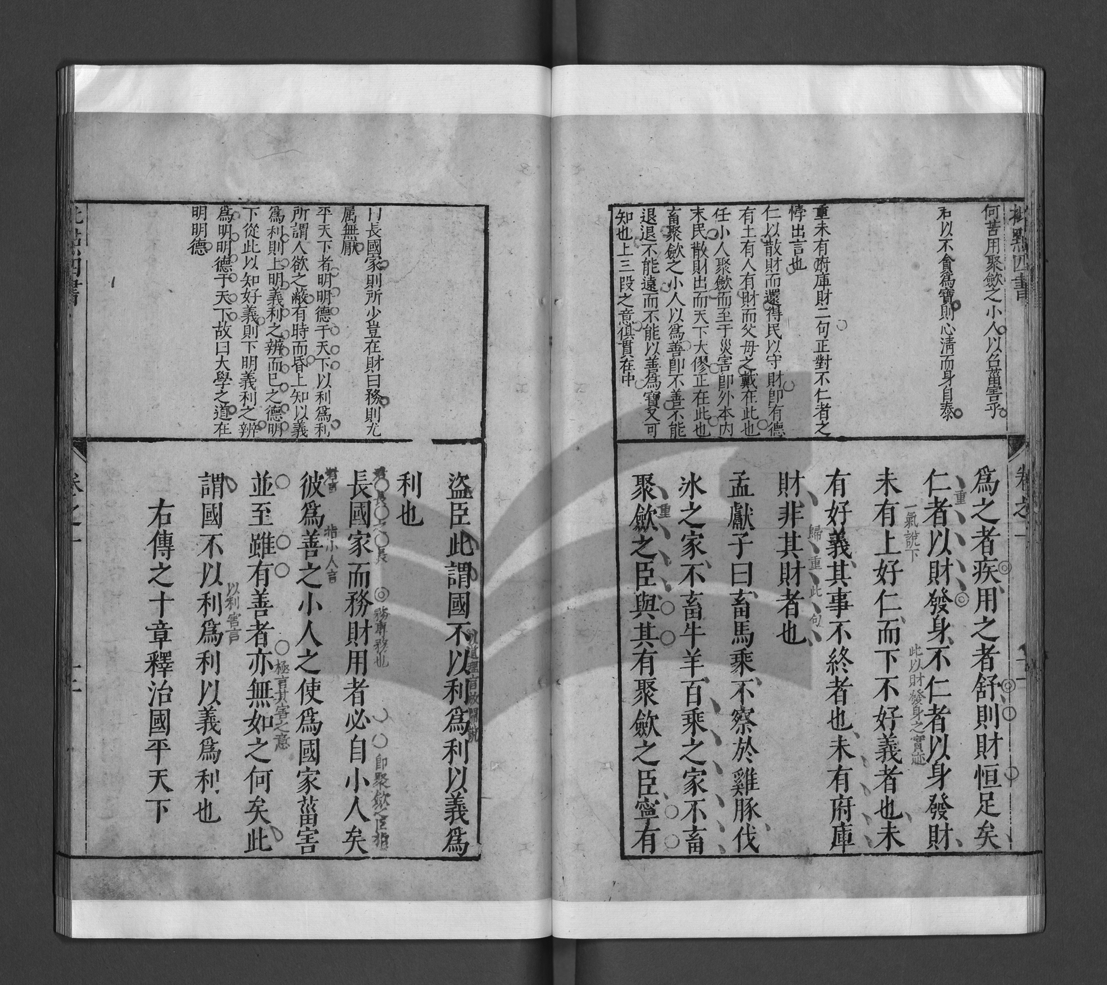 何苦用聚斂之小人以召菑害乎
利以不貪為寶則心清而身自泰
重未有府庫財二句正對不仁者之
悖出言也
仁以散財而還得民以守財即有德
有土有人有財而父母之戴在此也
任小人聚斂而至于災害即外本內
末民散財出而天下大僇正在此也
畜聚斂之小人以為善即不善不能
退退不能遠而不能以善為寶又可
知也上三段之意俱貫在中
為之者疾用之者舒則財恒足矣
仁者以財發身不仁者以身發財
重
一氣說下
未有上好仁而下不好義者也未
此以財發身之實迹
有好義其事不終者也未有府庫
財非其財者也
歸重此句
孟獻子曰畜馬乘不察於雞豚伐
冰之家不畜牛羊百乘之家不畜
聚斂之臣與其有聚斂之臣寧有
重
曰長國家則所少豈在財曰務則尤
屬無厭
平天下者明明德于天下以利為利
所謂人欲之蔽有時而昏上知以義
為利則上明義利之辨而已之德明
下從此以知好義則下明義利之辨
為明明德于天下故曰大學之道在
明明德
盜臣此謂國不以利為利以義為
利也
長國家而務財用者必自小人矣
務專務也
即聚斂之臣
彼為善之小人之使為國家菑害
指小人言
並至雖有善者亦無如之何矣此
極言其害之意
謂國不以利為利以義為利也
以利害言
右傳之十章釋治國平天下